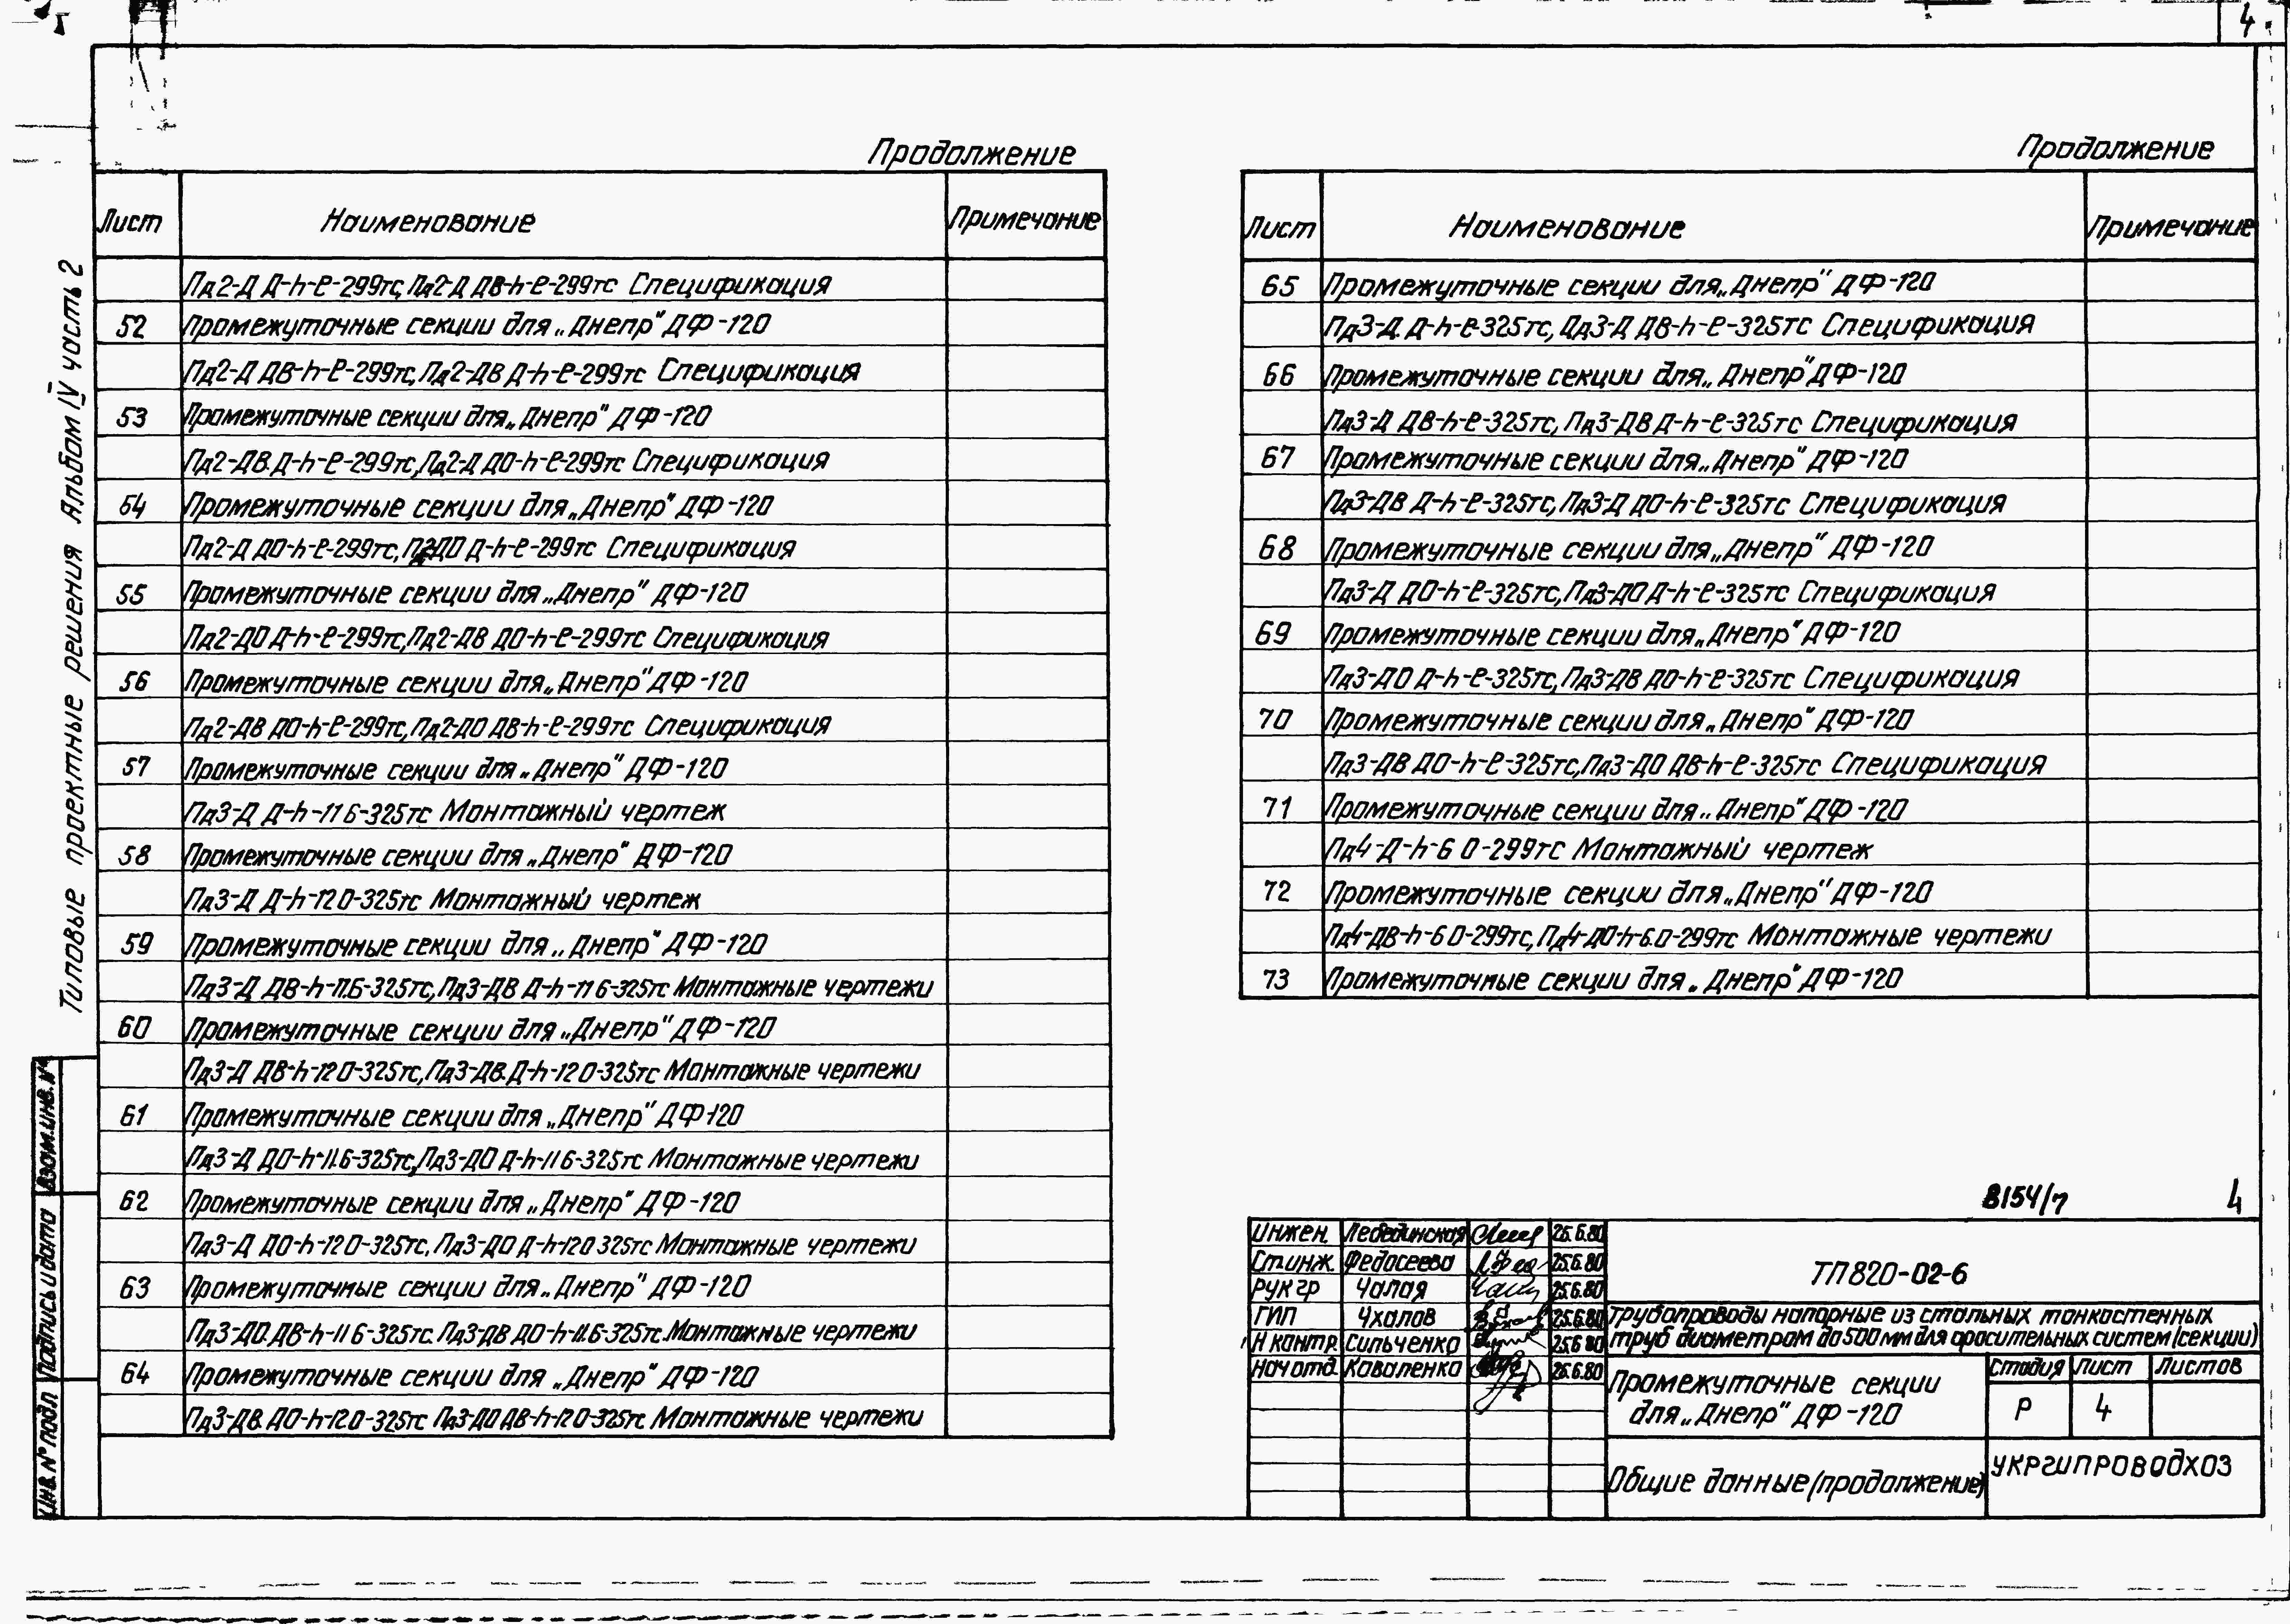 4
Типовые проектные решения Альбом IV часть 2
Продолжение
Лист Наименование Примечание
Пд2-Д Д-h-ℓ-299тс, Пд2-Д ДВ-h-ℓ-299тс Спецификация
52 Промежуточные секции для „Днепр" ДФ-120
Пд2-Д ДВ-h-ℓ-299тс, Пд2-ДВ Д-h-ℓ-299тс Спецификация
53 Промежуточные секции для „Днепр" ДФ-120
Пд2-ДВ Д-h-ℓ-299тс, Пд2-Д ДО-h-ℓ-299тс Спецификация
64 Промежуточные секции для „Днепр" ДФ-120
Пд2-Д ДО-h-ℓ-299тс, Пд2-ДО Д-h-ℓ-299тс Спецификация
55 Промежуточные секции для „Днепр" ДФ-120
Пд2-ДО Д-h-ℓ-299тс, Пд2-ДВ ДО-h-ℓ-299тс Спецификация
56 Промежуточные секции для „Днепр" ДФ-120
Пд2-ДВ ДО-h-ℓ-299тс, Пд2-ДО ДВ-h-ℓ-299тс Спецификация
57 Промежуточные секции для „Днепр" ДФ-120
Пд3-Д Д-h-11 6-325тс Монтажный чертеж
58 Промежуточные секции для „Днепр" ДФ-120
Пд3-Д Д-h-12 0-325тс Монтажный чертеж
59 Промежуточные секции для „Днепр" ДФ-120
Пд3-Д ДВ-h-11.6-325тс, Пд3-ДВ Д-h-11 6-325тс Монтажные чертежи
60 Промежуточные секции для „Днепр" ДФ-120
Пд3-Д ДВ-h-12 0-325тс, Пд3-ДВ.Д-h-12 0-325тс Монтажные чертежи
61 Промежуточные секции для „Днепр" ДФ-120
Пд3-Д ДО-h-11.6-325тс, Пд3-ДО Д-h-11 6-325тс Монтажные чертежи
62 Промежуточные секции для „Днепр" ДФ-120
Пд3-Д ДО-h-12 0-325тс, Пд3-ДО Д-h-12 0 325тс Монтажные чертежи
63 Промежуточные секции для „Днепр" ДФ-120
Пд3-ДО.ДВ-h-11 6-325тс. Пд3-ДВ ДО-h-11.6-325тс. Монтажные чертежи
64 Промежуточные секции для „Днепр" ДФ-120
Пд3-ДВ ДО-h-12 0-325тс Пд3-ДО ДВ-h-12 0-325тс Монтажные чертежи
Продолжение
Лист Наименование Примечание
65 Промежуточные секции для „Днепр" ДФ-120
Пд3-Д. Д-h-ℓ-325тс, Пд3-Д ДВ-h-ℓ-325тс Спецификация
66 Промежуточные секции для „Днепр" ДФ-120
Пд3-Д ДВ-h-ℓ-325тс, Пд3-ДВ Д-h-ℓ-325тс Спецификация
67 Промежуточные секции для „Днепр" ДФ-120
Пд3-ДВ Д-h-ℓ-325тс, Пд3-Д ДО-h-ℓ-325тс Спецификация
68 Промежуточные секции для „Днепр" ДФ-120
Пд3-Д ДО-h-ℓ-325тс, Пд3-ДО Д-h-ℓ-325тс Спецификация
69 Промежуточные секции для „Днепр" ДФ-120
Пд3-ДО Д-h-ℓ-325тс, Пд3-ДВ ДО-h-ℓ-325тс Спецификация
70 Промежуточные секции для „Днепр" ДФ-120
Пд3-ДВ ДО-h-ℓ-325тс, Пд3-ДО ДВ-h-ℓ-325тс Спецификация
71 Промежуточные секции для „Днепр" ДФ-120
Пд4-Д-h-6 0-299тс Монтажный чертеж
72 Промежуточные секции для „Днепр" ДФ-120
Пд4-ДВ-h-6 0-299тс, Пд4-ДО-h-6.0-299тс Монтажные чертежи
73 Промежуточные секции для „Днепр" ДФ-120
8154/7 4
Инжен. Лебединская 25.6.80
Ст.инж. Федосеева 25.6.80
Рук гр Чалая 25.6.80
ГИП Чхалов 25.6.80
Н контр. Сильченко 25.6 80
Нач отд. Коваленко 26.6.80
ТП 820-02-6
Трубопроводы напорные из стальных тонкостенных
труб диаметром до 500 мм для оросительных систем (секции)
Промежуточные секции
для „Днепр" ДФ-120
Стадия Лист Листов
Р 4
Общие данные (продолжение)
УКРГИПРОВОДХОЗ
Взам.инв. №
Подпись и дата
Инв. № подл